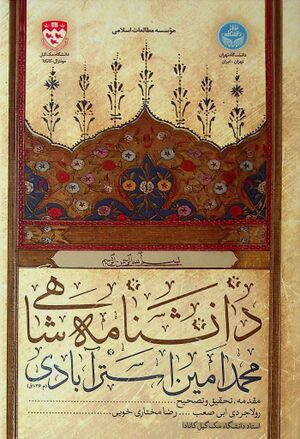 مؤسسه مطالعات اسلامی
دانشگاه تهران
تهران - ایران
دانشگاه مک‌گیل
مونترال - کانادا
بسم الله الرحمن الرحیم
دانشنامه شاهی
محمد امین استرآبادی
مقدمه، تحقیق و تصحیح
رولا جردی ابی صعب .... رضا مختاری خویی
استاد دانشگاه مک گیل کانادا